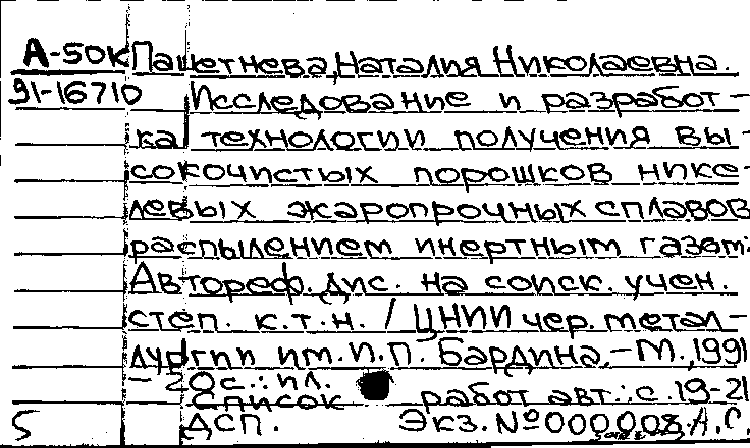 А-50К Пашетнева, Наталия Николаевна.
91-16710 Исследование и разработ-
ка технологии получения вы-
сокочистых порошков нике-
левых жаропрочных сплавов
распылением инертным газом:
Автореф. дис. на соиск. учен.
степ. к.т.н. / ЦНИИ чер. метал-
лургии им. И.П. Бардина. - М., 1991
- 20 с.: ил.
Список работ авт.: с. 19-21
5 ДСП. Экз. № 000008.